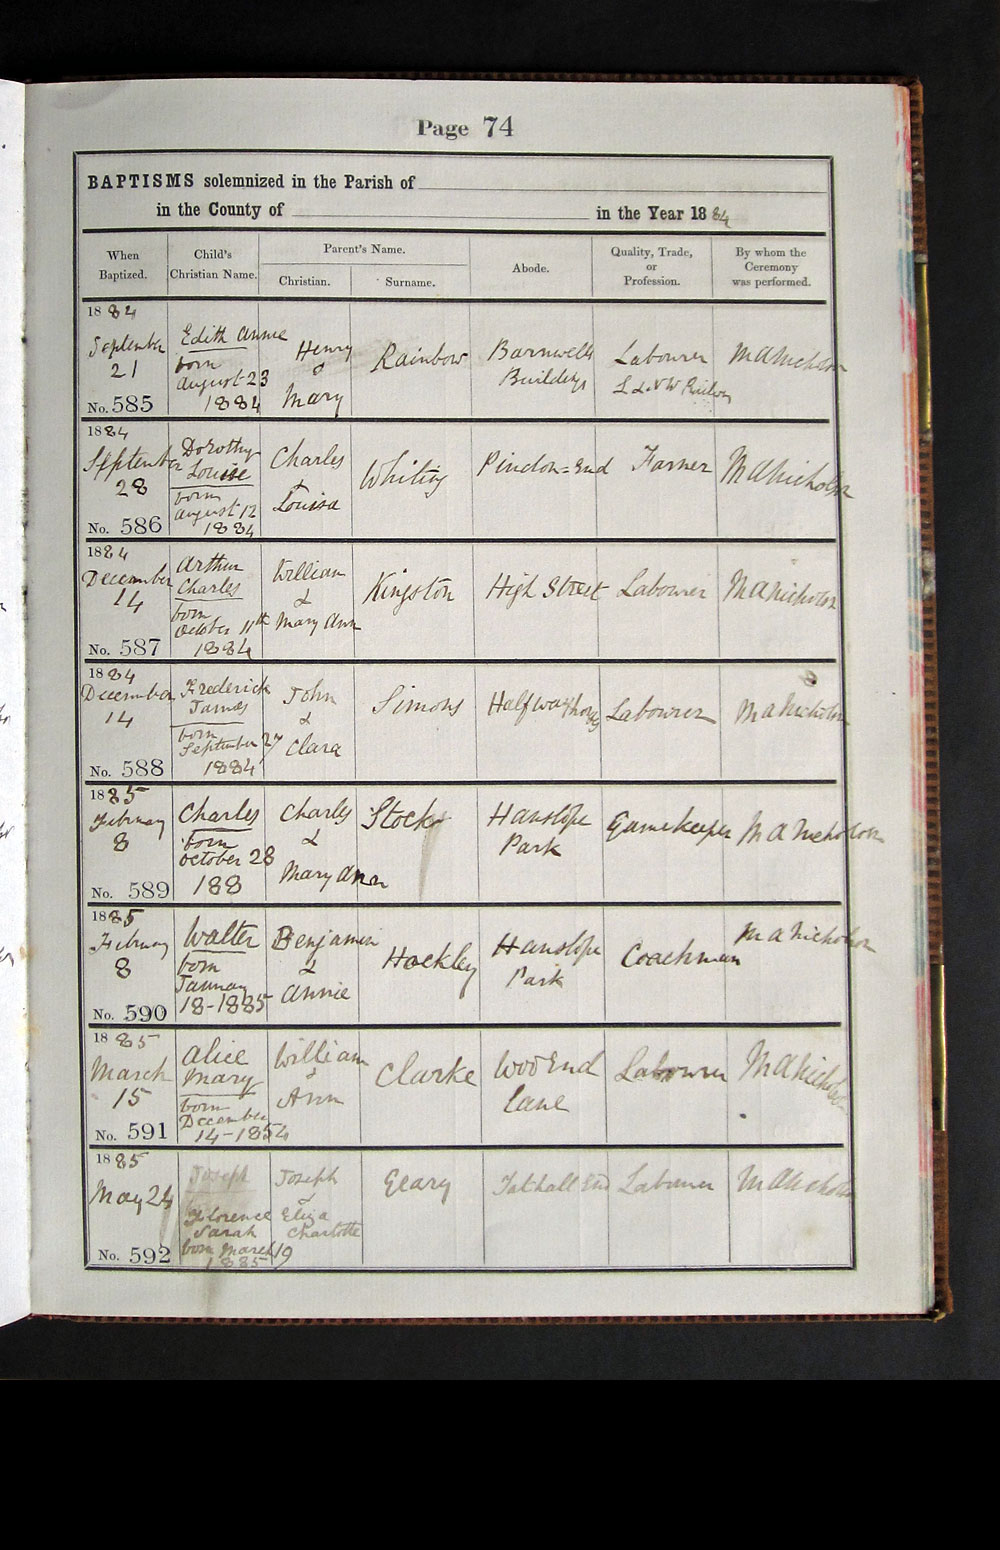 Page 74
BAPTISMS solemnized in the Parish of
in the County of in the Year 1884
When Baptized.
Child's Christian Name.
Parent's Name.
Christian.
Surname.
Abode.
Quality, Trade, or Profession.
By whom the Ceremony was performed.
1884
September
21
No. 585
Edith Annie
born
August 23
1884
Henry
&
Mary
Rainbow
Barnwells
Buildings
Labourer
L & N W Railway
M A Nicholson
1884
September
28
No. 586
Dorothy
Louise
born
August 12
1884
Charles
&
Louisa
Whiting
Pindon=End
Farmer
M A Nicholson
1884
December
14
No. 587
Arthur
Charles
born
October 11th
1884
William
&
Mary Ann
Kingston
High Street
Labourer
M A Nicholson
1884
December
14
No. 588
Frederick
James
born
September 27
1884
John
&
Clara
Simons
Halfway house
Labourer
M A Nicholson
1885
February
8
No. 589
Charles
born
October 28
188
Charles
&
Mary Ann
Stocks
Hanslope
Park
Gamekeeper
M A Nicholson
1885
February
8
No. 590
Walter
born
January
18-1885
Benjamin
&
Annie
Hockley
Hanslope
Park
Coachman
M A Nicholson
1885
March
15
No. 591
Alice
Mary
born
December
14-1854
William
&
Ann
Clarke
Woo End
Lane
Labourer
M A Nicholson
1885
May 24
No. 592
Joseph
Florence
Sarah
born March 19
1885
Joseph
&
Eliza
Charlotte
Geary
Tathall End
Labourer
M A Nicholson